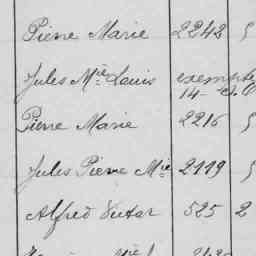 Pierre Marie 2242 5
Jules Mie Louis exempté
14-
Pierre Marie 2216 5
Jules Pierre Mie 2119 5
Alfred Victor 525 2